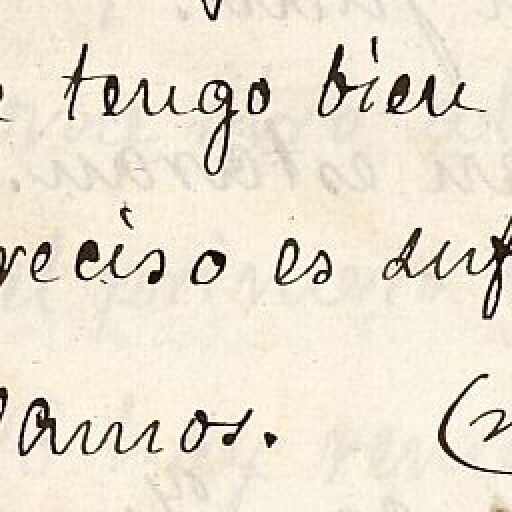 tengo bien
reciso es suf
amos. (